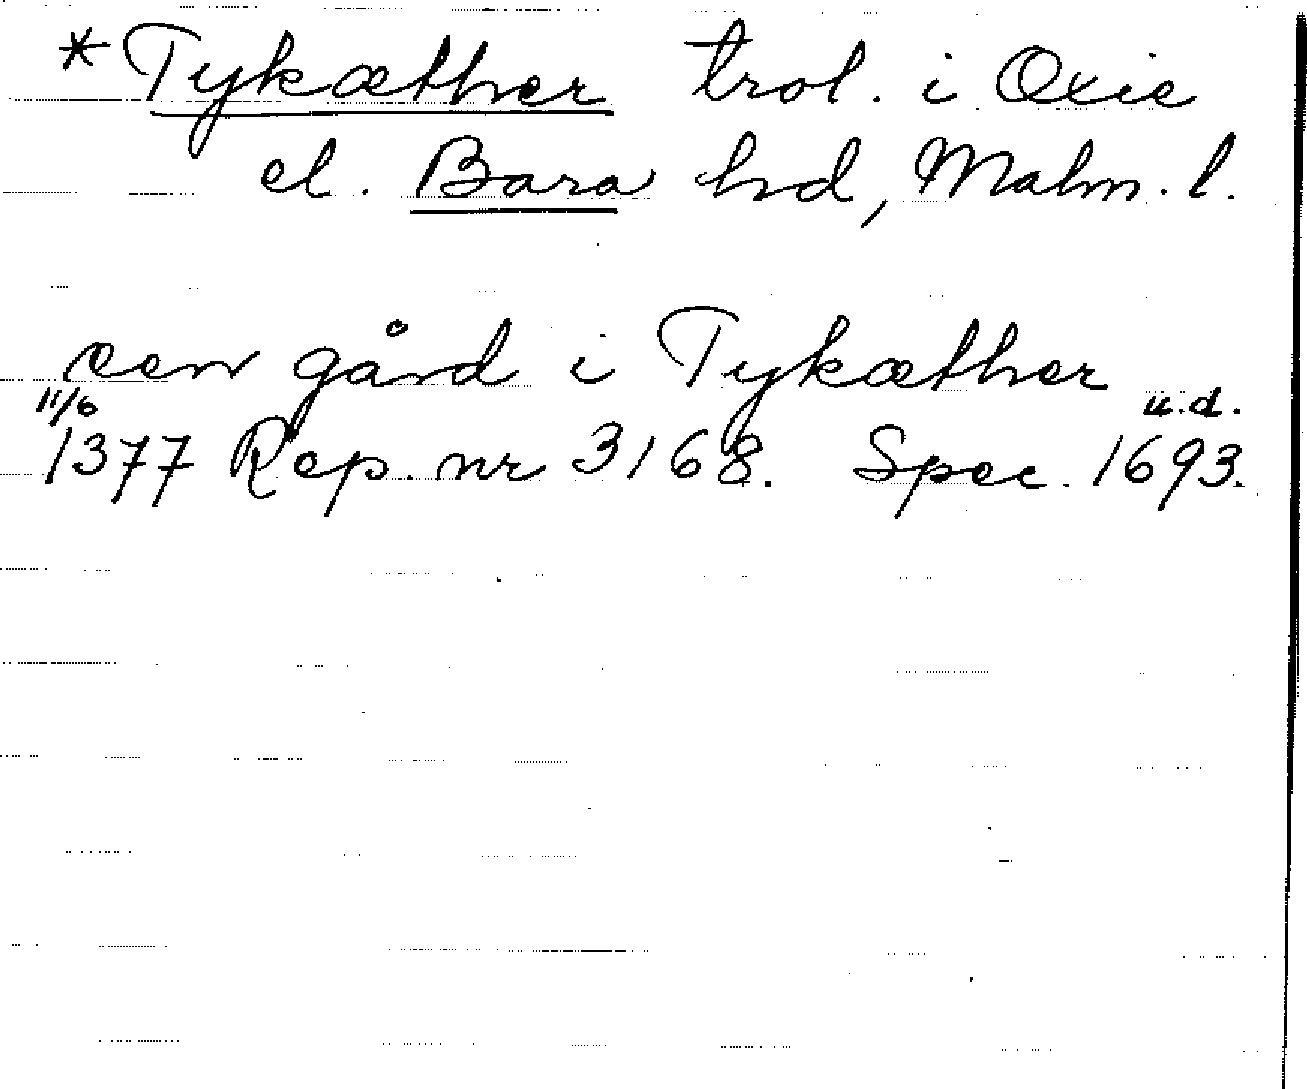 *Tykæther trol. i Oxie
el. Bara hd, Malm. l.
een gård i Tykæther
11/6 u.d.
1377 Rep. nr 3168. Spec. 1693.